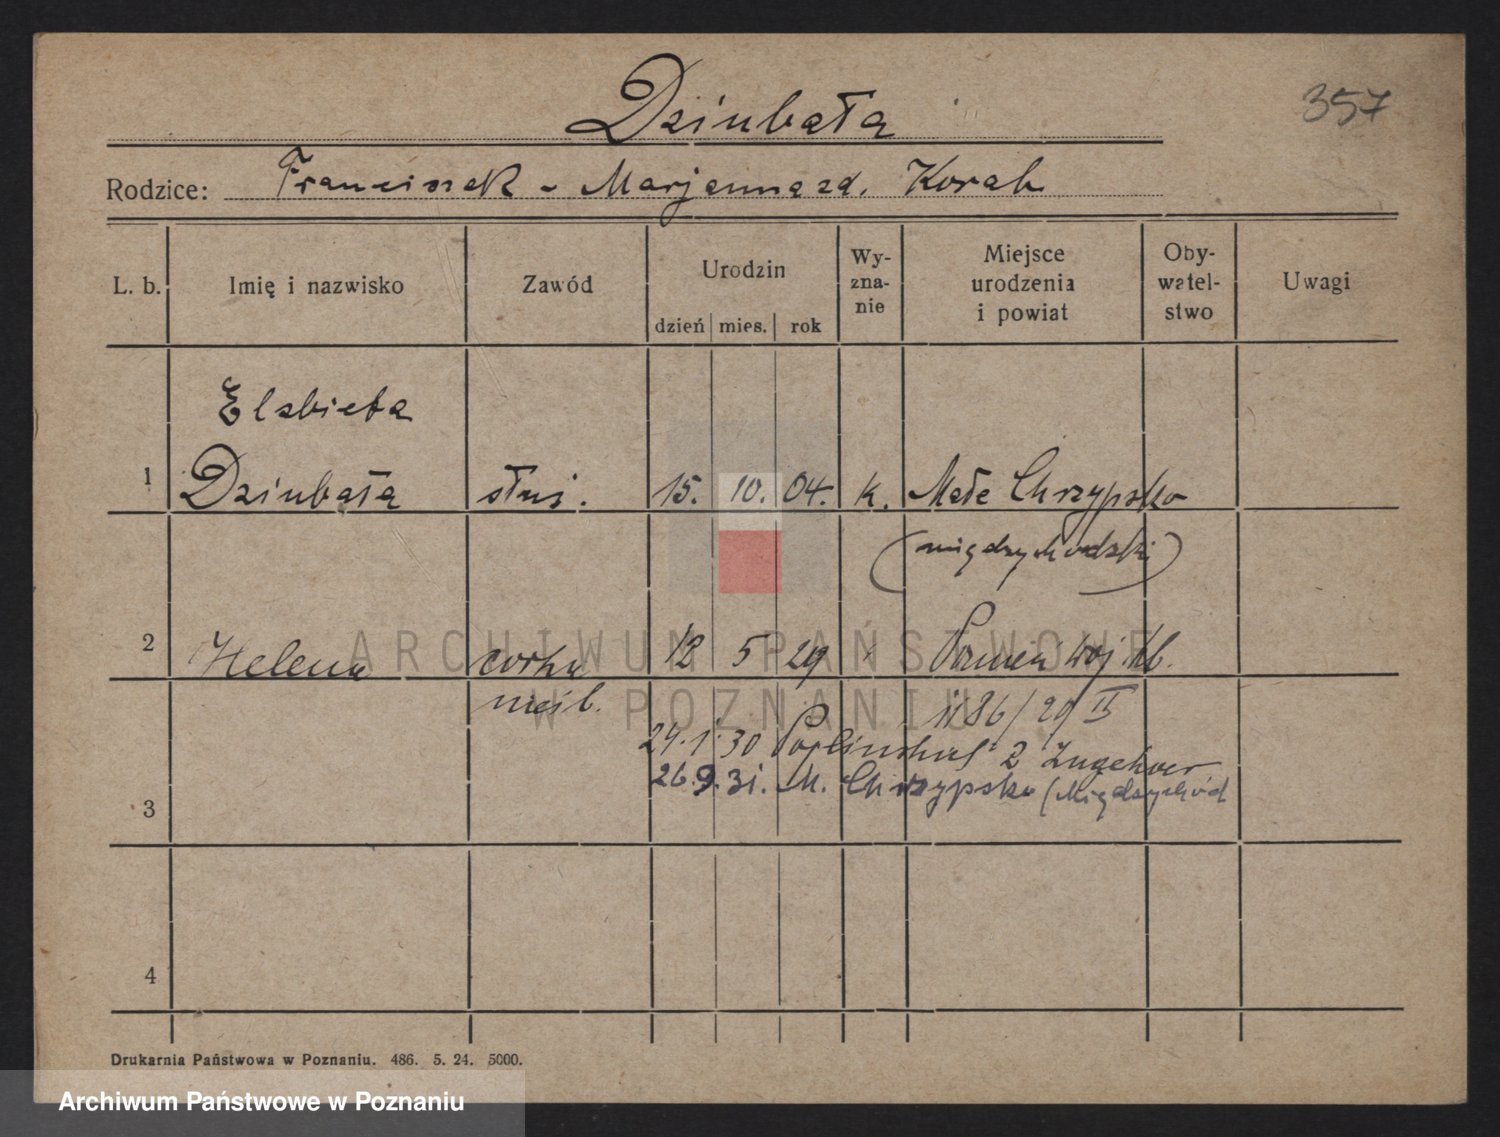 357
Dziubała
Rodzice: Franciszek - Marjanna zd. Korab
L. b. Imię i nazwisko Zawód Urodzin dzień mies. rok Wy-zna-nie Miejsce urodzenia i powiat Oby-watel-stwo Uwagi
Elzbieta
1 Dziubała służ. 15. 10. 04. k. Małe Chrzypsko
(międzychodzki)
2 Helena córka 12 5 29
nieśl. 1186/29 II
24.1.30 2
26.9.31. M. Chrzypsko (Międzychód
3
4
ARCHIWUM PAŃSTWOWE
W POZNANIU
Drukarnia Państwowa w Poznaniu. 486. 5. 24. 5000.
Archiwum Państwowe w Poznaniu